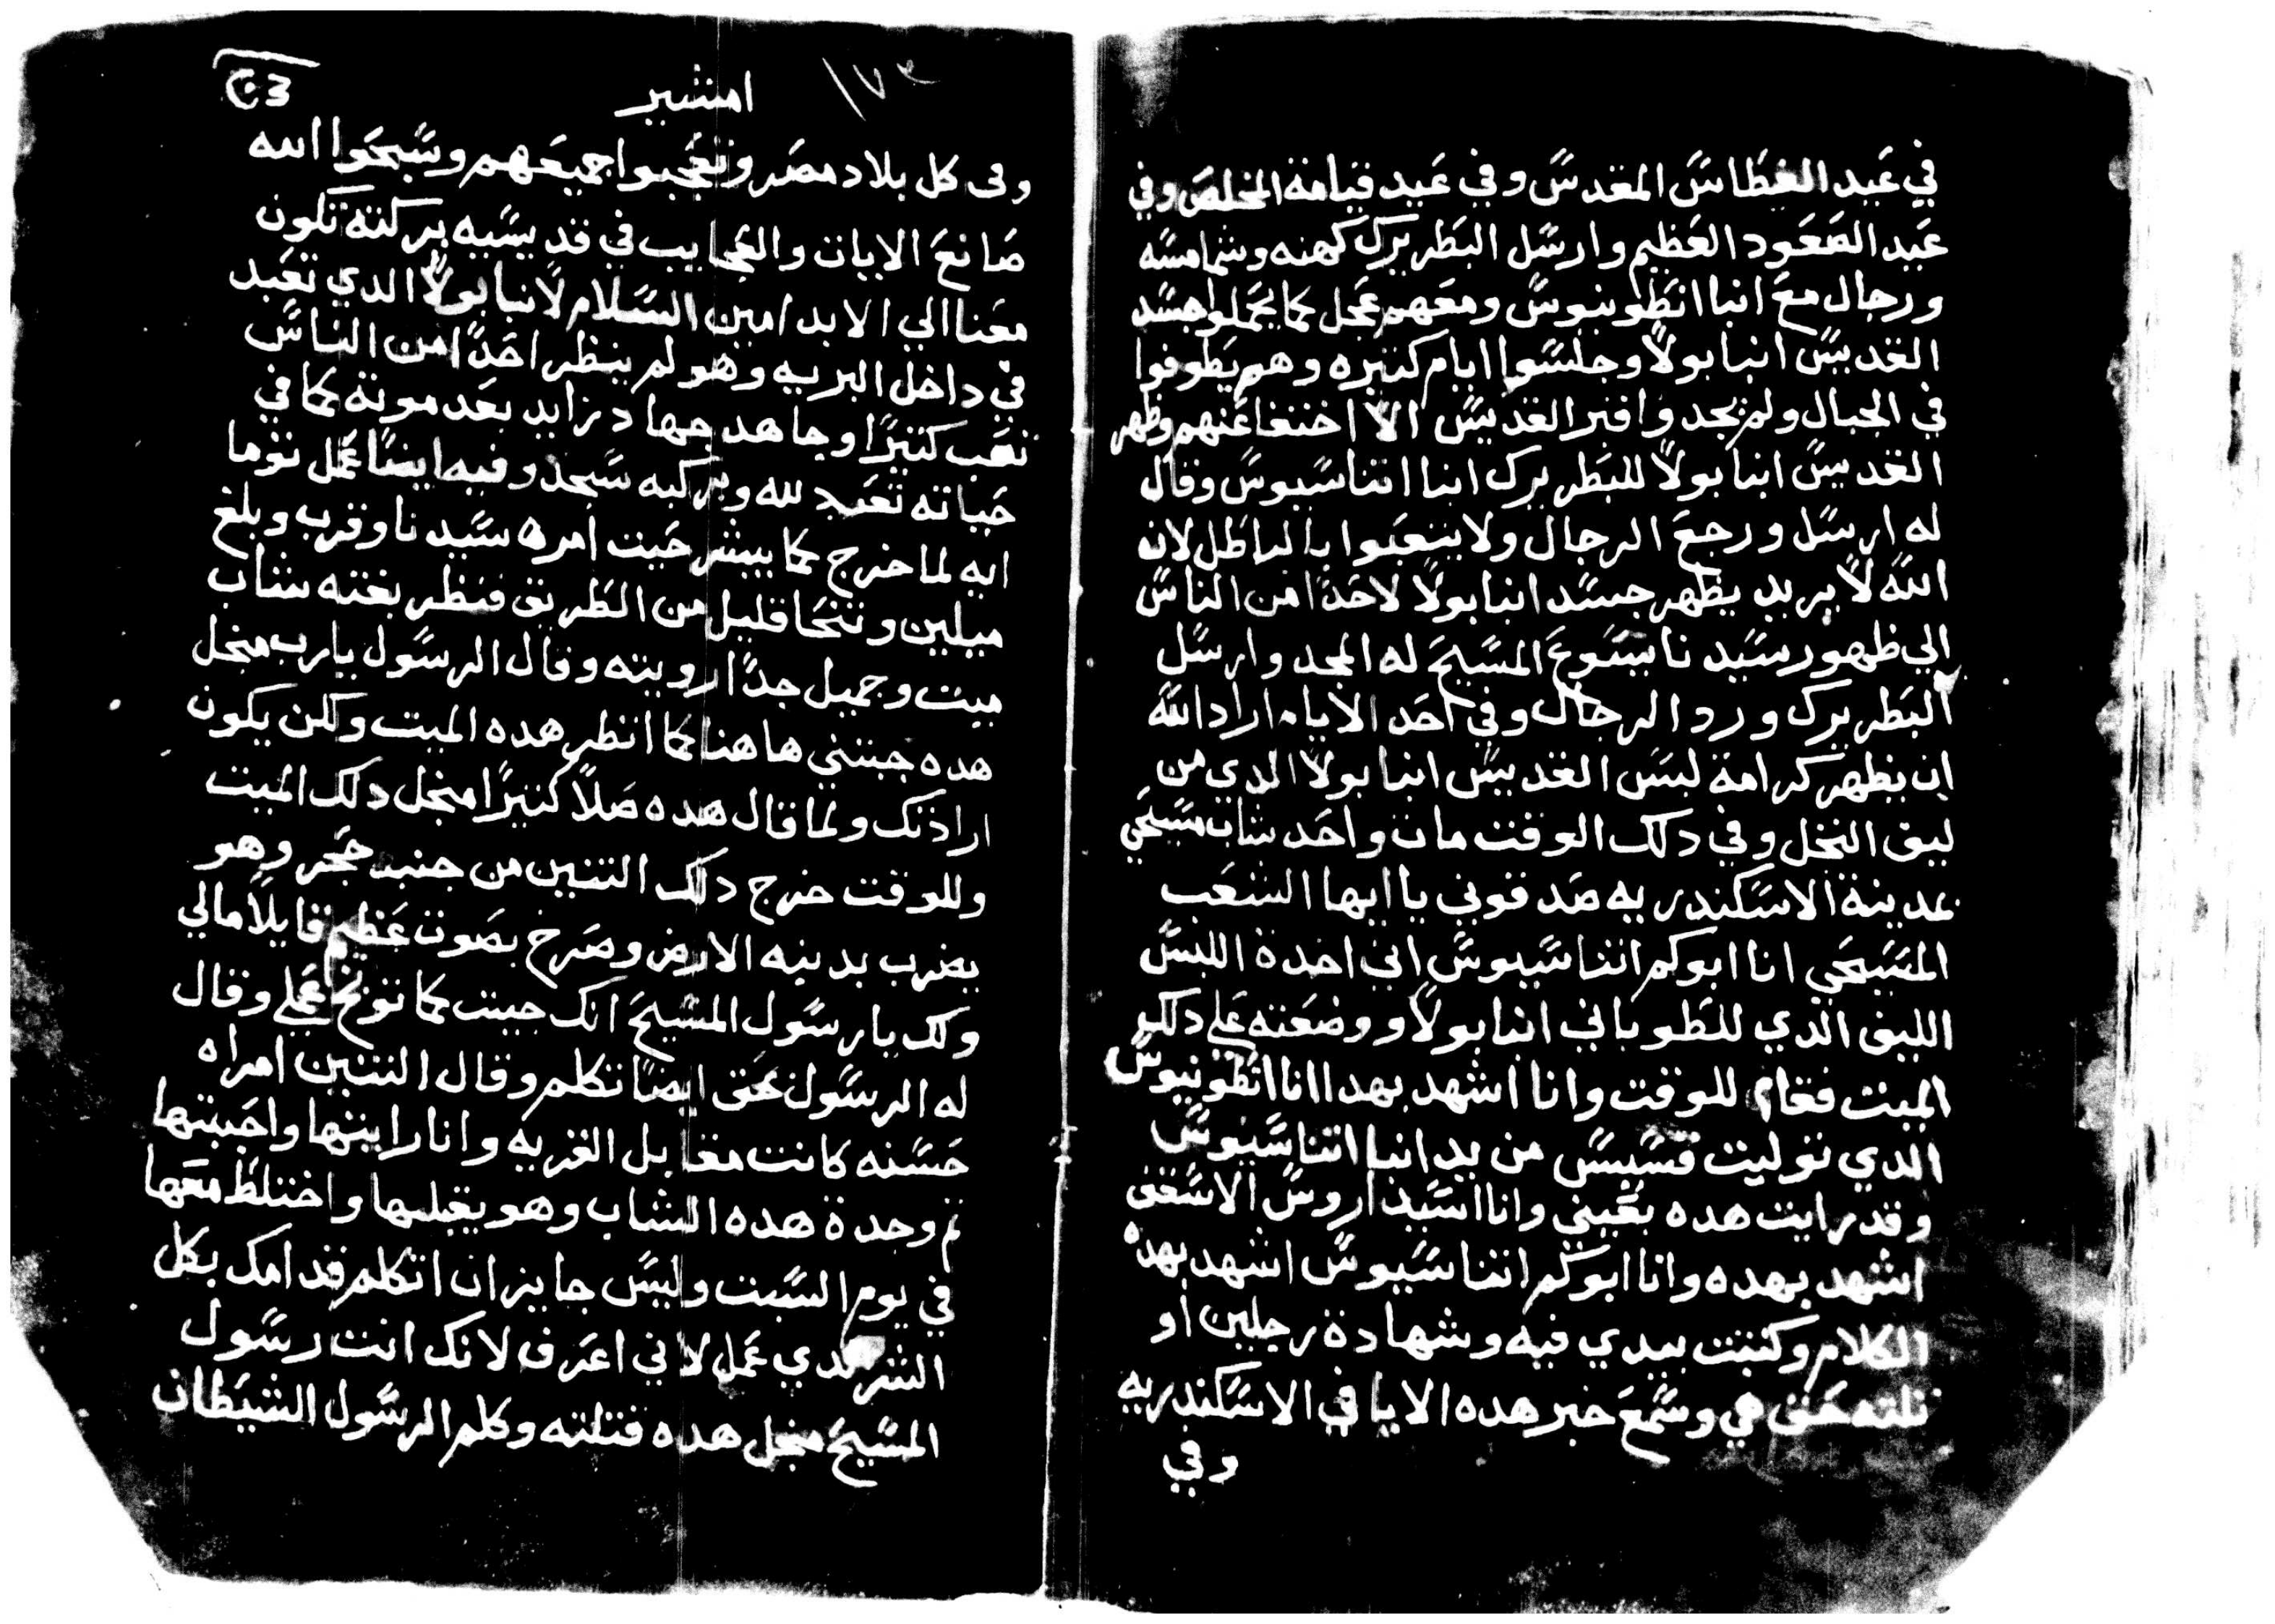 في عيد الغطاس المقدس وفي عيد قيامة المخلص وفي
عيد الصعود العظيم وارسل البطريرك كهنه وشمامسه
ورجال مع انبا انطونيوس ومعهم عجل كما يحملوا جسد
القديس انبا بولا وجلسوا ايام كتيره وهم يطوفوا
في الجبال ولم يجدوا قبر القديس الا اختفا عنهم وظهر
القديس انبا بولا للبطريرك انبا اتناسيوس وقال
له ارسل ورجع الرجال ولا يتعبوا بالباطل لان
الله لا يريد يظهر جسد انبا بولا لاحدا من الناس
الي ظهور سيدنا يسوع المسيح له المجد وارسل
البطريرك ورد الرجال وفي احد الايام اراد الله
ان يظهر كرامة لبس القديس انبا بولا الدي من
ليق النخل وفي دلك الوقت مات واحد شاب مسيحي
بمدينة الاسكندريه صدقوني يا ايها الشعب
المسيحي انا ابوكم اتناسيوس اني اخدة اللبس
الليق الدي للطوباني انبا بولا ووضعته على دلك
الميت فقام للوقت وانا اشهد بهدا انا انطونيوس
الدي توليت قسيس من يد انبا اتناسيوس
وقد رايت هده بعيني وانا اسيداروس الاسقف
اشهد بهده وانا ابوكم اتناسيوس اشهد بهده
الكلام وكتبت بيدي فيه وشهادة رجلين او
تلته حق هي وسمع خبر هده الايا في الاسكندريه
وفي
١٧٣
امشير
وفى كل بلاد مصر وتعجبوا جميعهم وسبحوا الله
صانع الايات والعجايب في قديسيه بركته تكون
معنا الي الابد امين السلام لانبا بولا الدي تعبد
في داخل البريه وهو لم ينظر احدا من الناس
تعب كتيرا وجاهد جهاد زايد بعد موته كما في
حياته تعبد لله وبركبه سجد وفيه ايضا عمل توما
انه لما خرج كما يبشر حيت امره سيدنا وقرب وبلغ
ميلين وتنحا قليل من الطريق فنظر بغته شاب
ميت وجميل جدا رويته وقال الرسول يارب منجل
هده جبتني هاهنا كما انظر هده الميت ولكن يكون
ارادتك ولما قال هده صلا كتيرا منجل دلك الميت
وللوقت خرج دلك التنين من جنب حجر وهو
يضرب بدنبه الارض وصرخ بصوت عظيم قايلا مالي
ولك يا رسول المسيح انك جيت كما توبخ عملي وقال
له الرسول نحق ايضا تكلم وقال التنين امراه
حسنه كانت مقابل القريه وانا رايتها واحببتها
تم وجدة هده الشاب وهو يقبلها واختلط معها
في يوم السبت وليس جايز ان اتكلم قدامك بكل
الشر لدي عمل لاني اعرف لانك انت رسول
المسيح منجل هده قتلته وكلم الرسول الشيطان